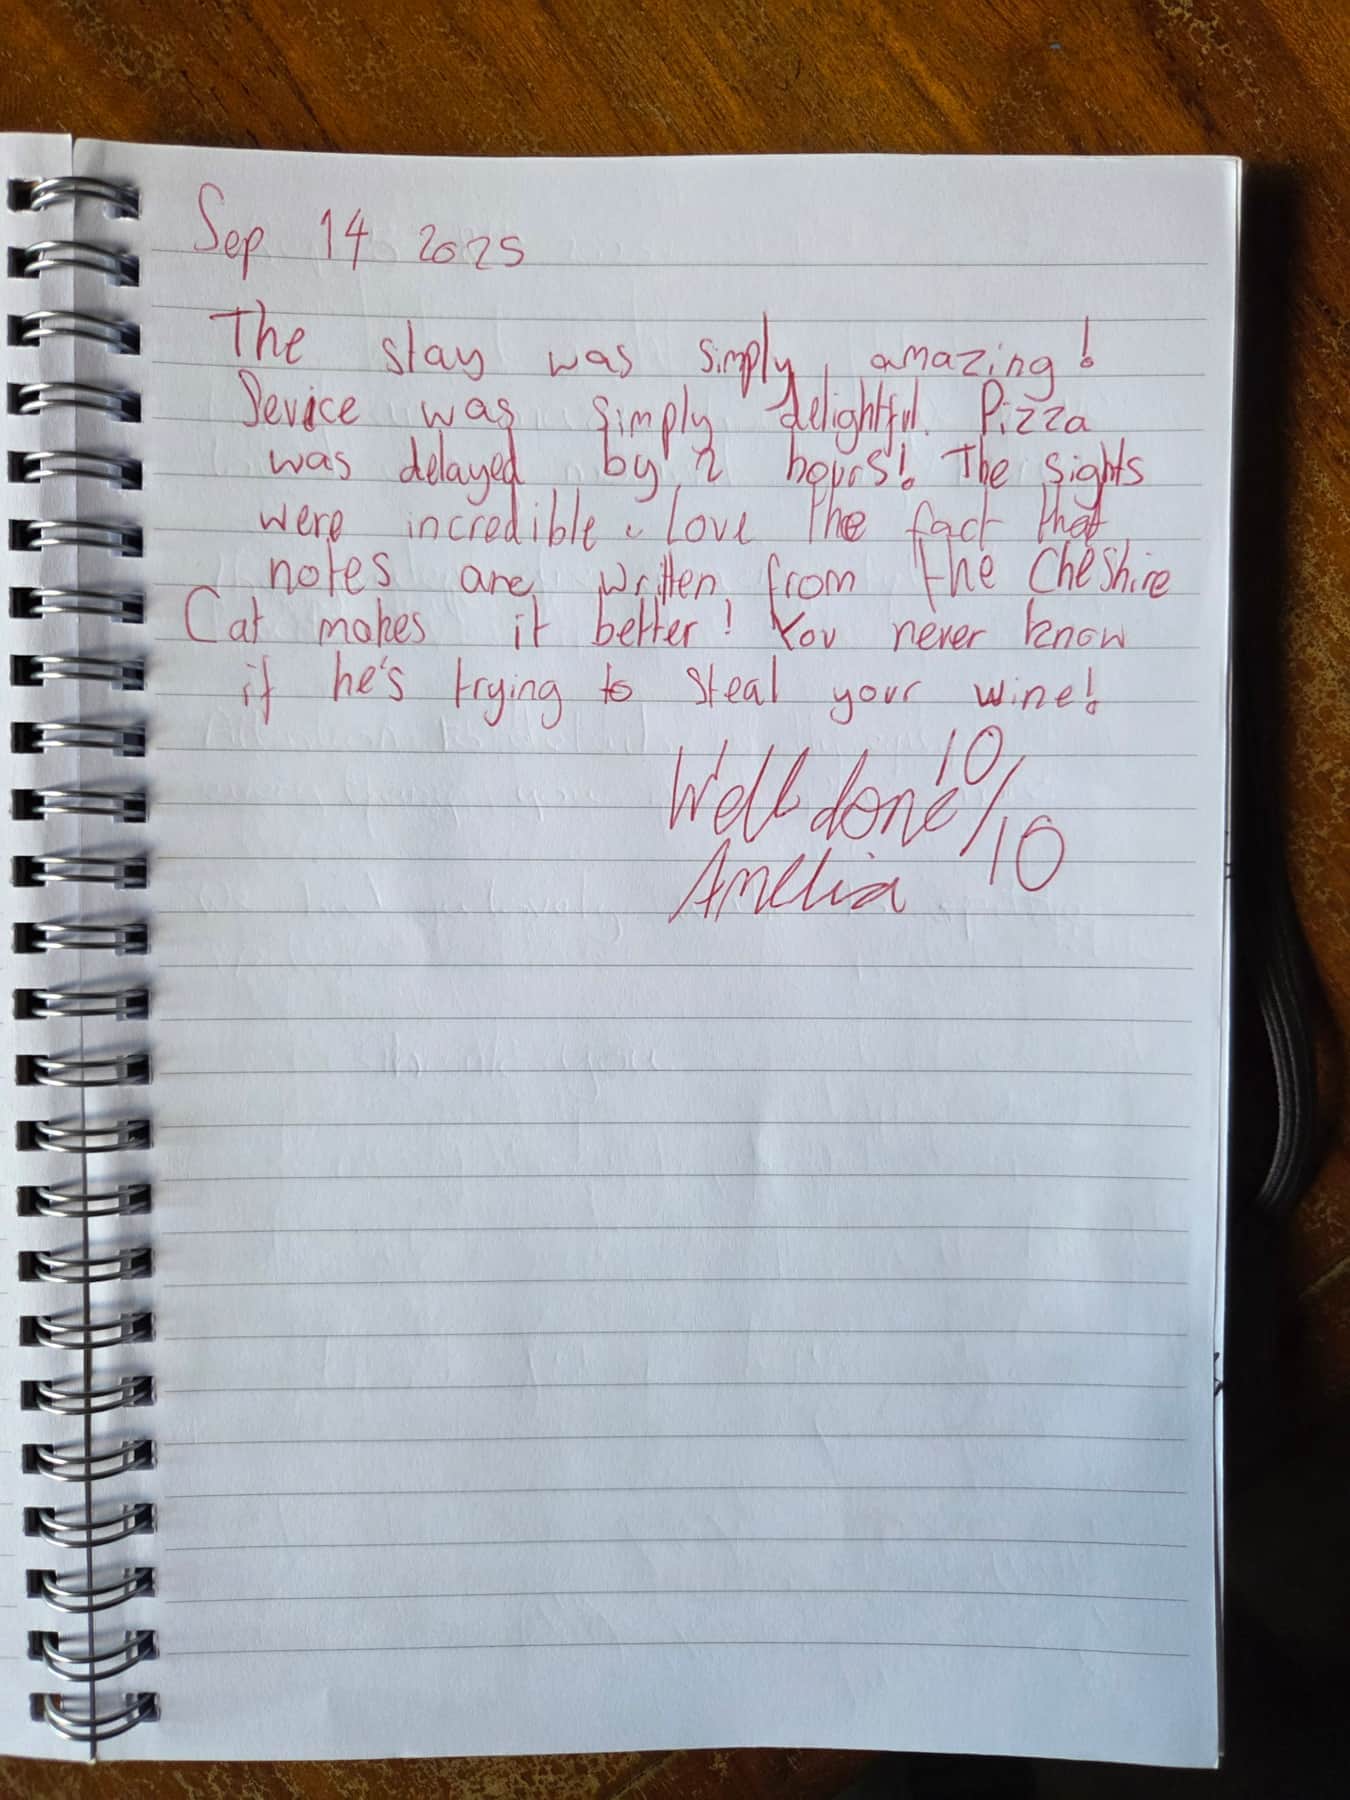 Sep 14 2025
The stay was simply amazing!
Sevice was simply delightful. Pizza
was delayed by 2 hours! The sights
were incredible. Love the fact that
notes are written from the Cheshire
Cat makes it better! You never know
if he's trying to steal your wine!
Well done 10/10
Amelia
thank you